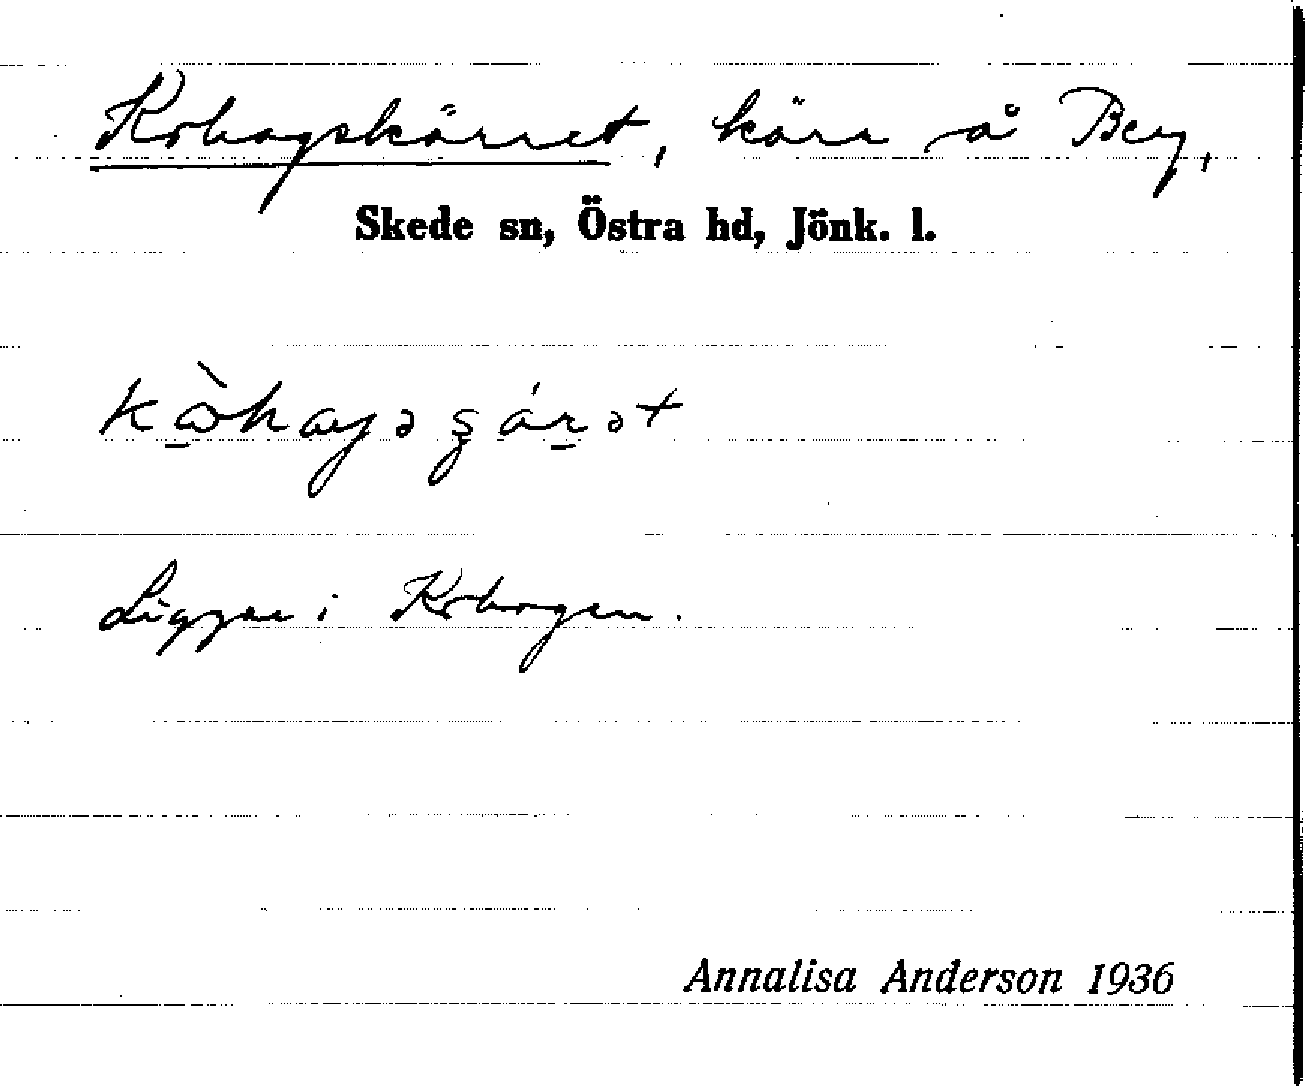 Kohagskärret, kärr å Berg,
Skede sn, Östra hd, Jönk. l.
Ligger i Kohagen.
Annalisa Anderson 1936